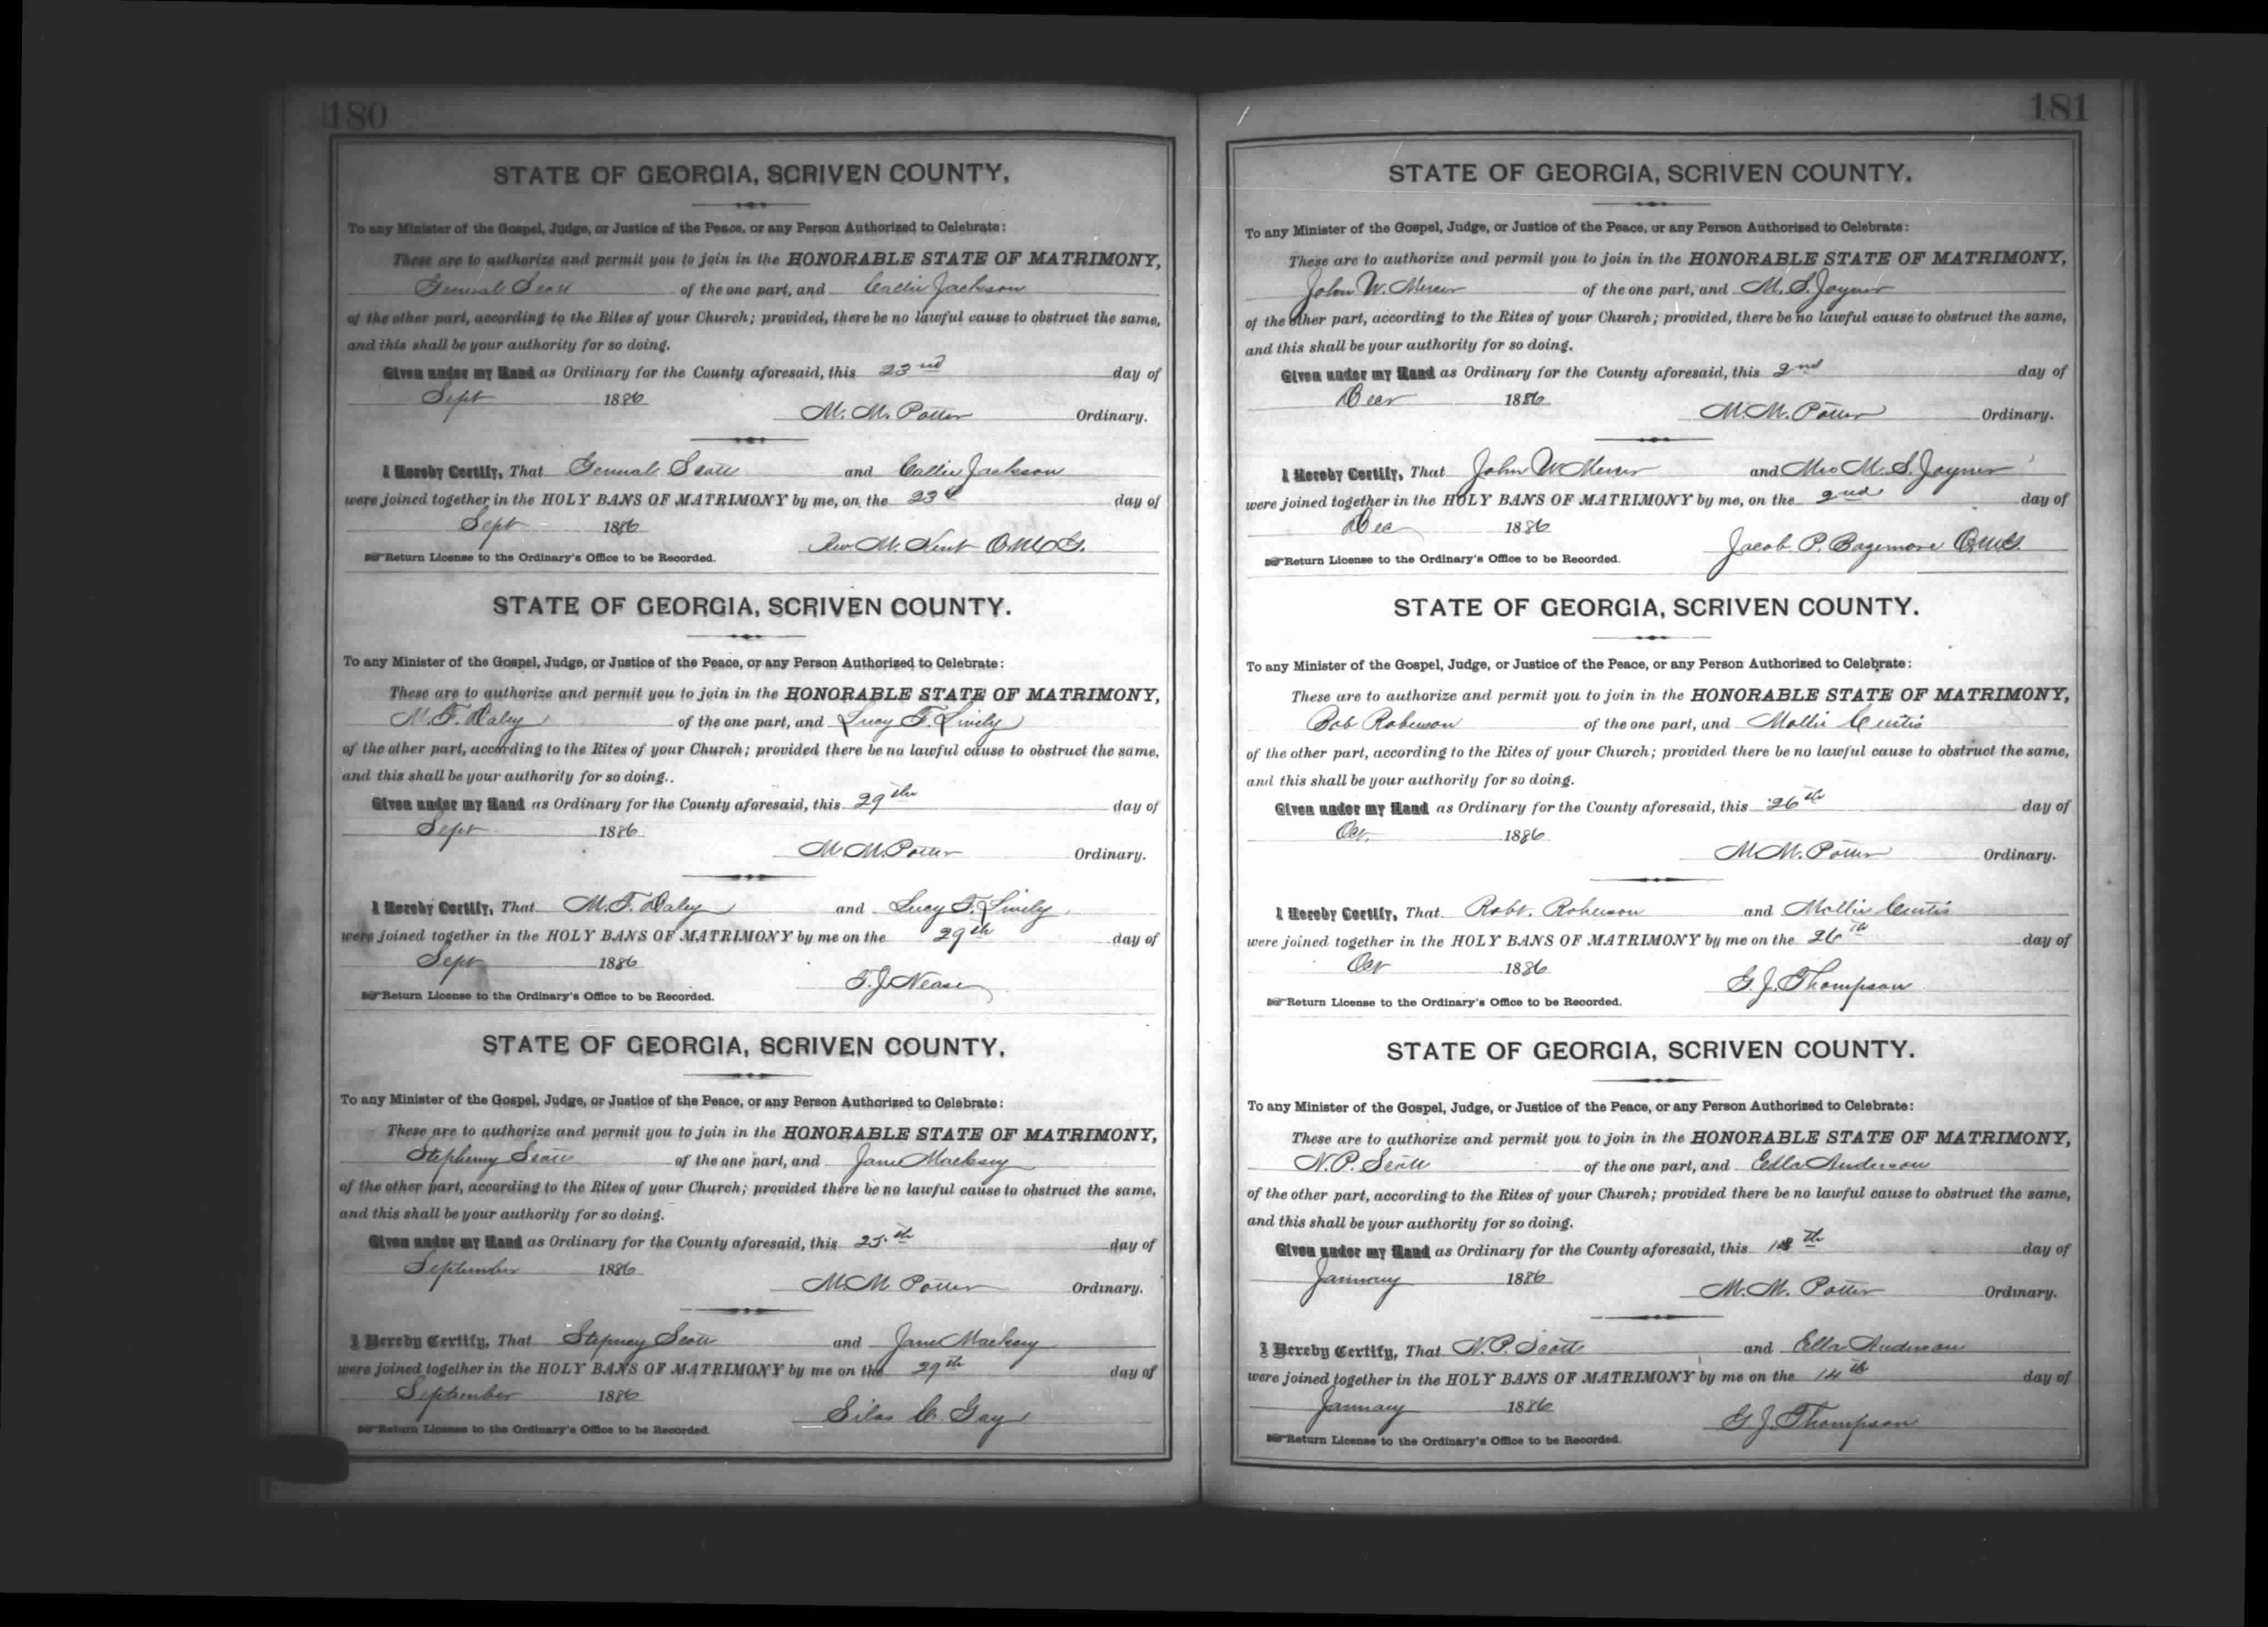 180
STATE OF GEORGIA, SCRIVEN COUNTY.
To any Minister of the Gospel, Judge, or Justice of the Peace, or any Person Authorized to Celebrate:
These are to authorize and permit you to join in the HONORABLE STATE OF MATRIMONY,
General Scott of the one part, and Callie Jackson
of the other part, according to the Rites of your Church; provided, there be no lawful cause to obstruct the same,
and this shall be your authority for so doing.
Given under my Hand as Ordinary for the County aforesaid, this 23rd day of
Sept 1886
M. M. Potter Ordinary.
I Hereby Certify, That General Scott and Callie Jackson
were joined together in the HOLY BANS OF MATRIMONY by me, on the 23d day of
Sept 1886
Rev. M. Kent O.M.G.
Return License to the Ordinary's Office to be Recorded.
STATE OF GEORGIA, SCRIVEN COUNTY.
To any Minister of the Gospel, Judge, or Justice of the Peace, or any Person Authorized to Celebrate:
These are to authorize and permit you to join in the HONORABLE STATE OF MATRIMONY,
M. F. Daley of the one part, and Lucy F. Lively
of the other part, according to the Rites of your Church; provided there be no lawful cause to obstruct the same,
and this shall be your authority for so doing..
Given under my Hand as Ordinary for the County aforesaid, this 29th day of
Sept 1886
M M. Potter Ordinary.
I Hereby Certify, That M. F. Daley and Lucy F. Lively
were joined together in the HOLY BANS OF MATRIMONY by me on the 29th day of
Sept 1886
T. J. Nease
Return License to the Ordinary's Office to be Recorded.
STATE OF GEORGIA, SCRIVEN COUNTY.
To any Minister of the Gospel, Judge, or Justice of the Peace, or any Person Authorized to Celebrate:
These are to authorize and permit you to join in the HONORABLE STATE OF MATRIMONY,
Stepheny Scott of the one part, and Jane Macksey
of the other part, according to the Rites of your Church; provided there be no lawful cause to obstruct the same,
and this shall be your authority for so doing.
Given under my Hand as Ordinary for the County aforesaid, this 25.th day of
September 1886
M. M Potter Ordinary.
I Hereby Certify, That Stepney Scott and Jane Macksey
were joined together in the HOLY BANS OF MATRIMONY by me on the 29th day of
September 1886
Silas C. Gay
Return License to the Ordinary's Office to be Recorded.
181
STATE OF GEORGIA, SCRIVEN COUNTY.
To any Minister of the Gospel, Judge, or Justice of the Peace, or any Person Authorized to Celebrate:
These are to authorize and permit you to join in the HONORABLE STATE OF MATRIMONY,
John W. Mercer of the one part, and M. S. Joyner
of the other part, according to the Rites of your Church; provided, there be no lawful cause to obstruct the same,
and this shall be your authority for so doing.
Given under my Hand as Ordinary for the County aforesaid, this 2nd day of
Decr 1886
M. M. Potter Ordinary.
I Hereby Certify, That John W Mercer and Mrs M. S. Joyner
were joined together in the HOLY BANS OF MATRIMONY by me, on the 2nd day of
Dec 1886
Jacob P. Bazemore O.M.G.
Return License to the Ordinary's Office to be Recorded.
STATE OF GEORGIA, SCRIVEN COUNTY.
To any Minister of the Gospel, Judge, or Justice of the Peace, or any Person Authorized to Celebrate:
These are to authorize and permit you to join in the HONORABLE STATE OF MATRIMONY,
Rob Roberson of the one part, and Mollie Curtis
of the other part, according to the Rites of your Church; provided there be no lawful cause to obstruct the same,
and this shall be your authority for so doing.
Given under my Hand as Ordinary for the County aforesaid, this 26th day of
Oct. 1886
M M. Potter Ordinary.
I Hereby Certify, That Robt. Roberson and Mollie Curtis
were joined together in the HOLY BANS OF MATRIMONY by me on the 26th day of
Oct 1886
G. J. Thompson
Return License to the Ordinary's Office to be Recorded.
STATE OF GEORGIA, SCRIVEN COUNTY.
To any Minister of the Gospel, Judge, or Justice of the Peace, or any Person Authorized to Celebrate:
These are to authorize and permit you to join in the HONORABLE STATE OF MATRIMONY,
N. P. Scott of the one part, and Ella Anderson
of the other part, according to the Rites of your Church; provided there be no lawful cause to obstruct the same,
and this shall be your authority for so doing.
Given under my Hand as Ordinary for the County aforesaid, this day of
January 1886
M. M. Potter Ordinary.
I Hereby Certify, That N. P. Scott and Ella Anderson
were joined together in the HOLY BANS OF MATRIMONY by me on the 14th day of
January 1886
G J. Thompson
Return License to the Ordinary's Office to be Recorded.